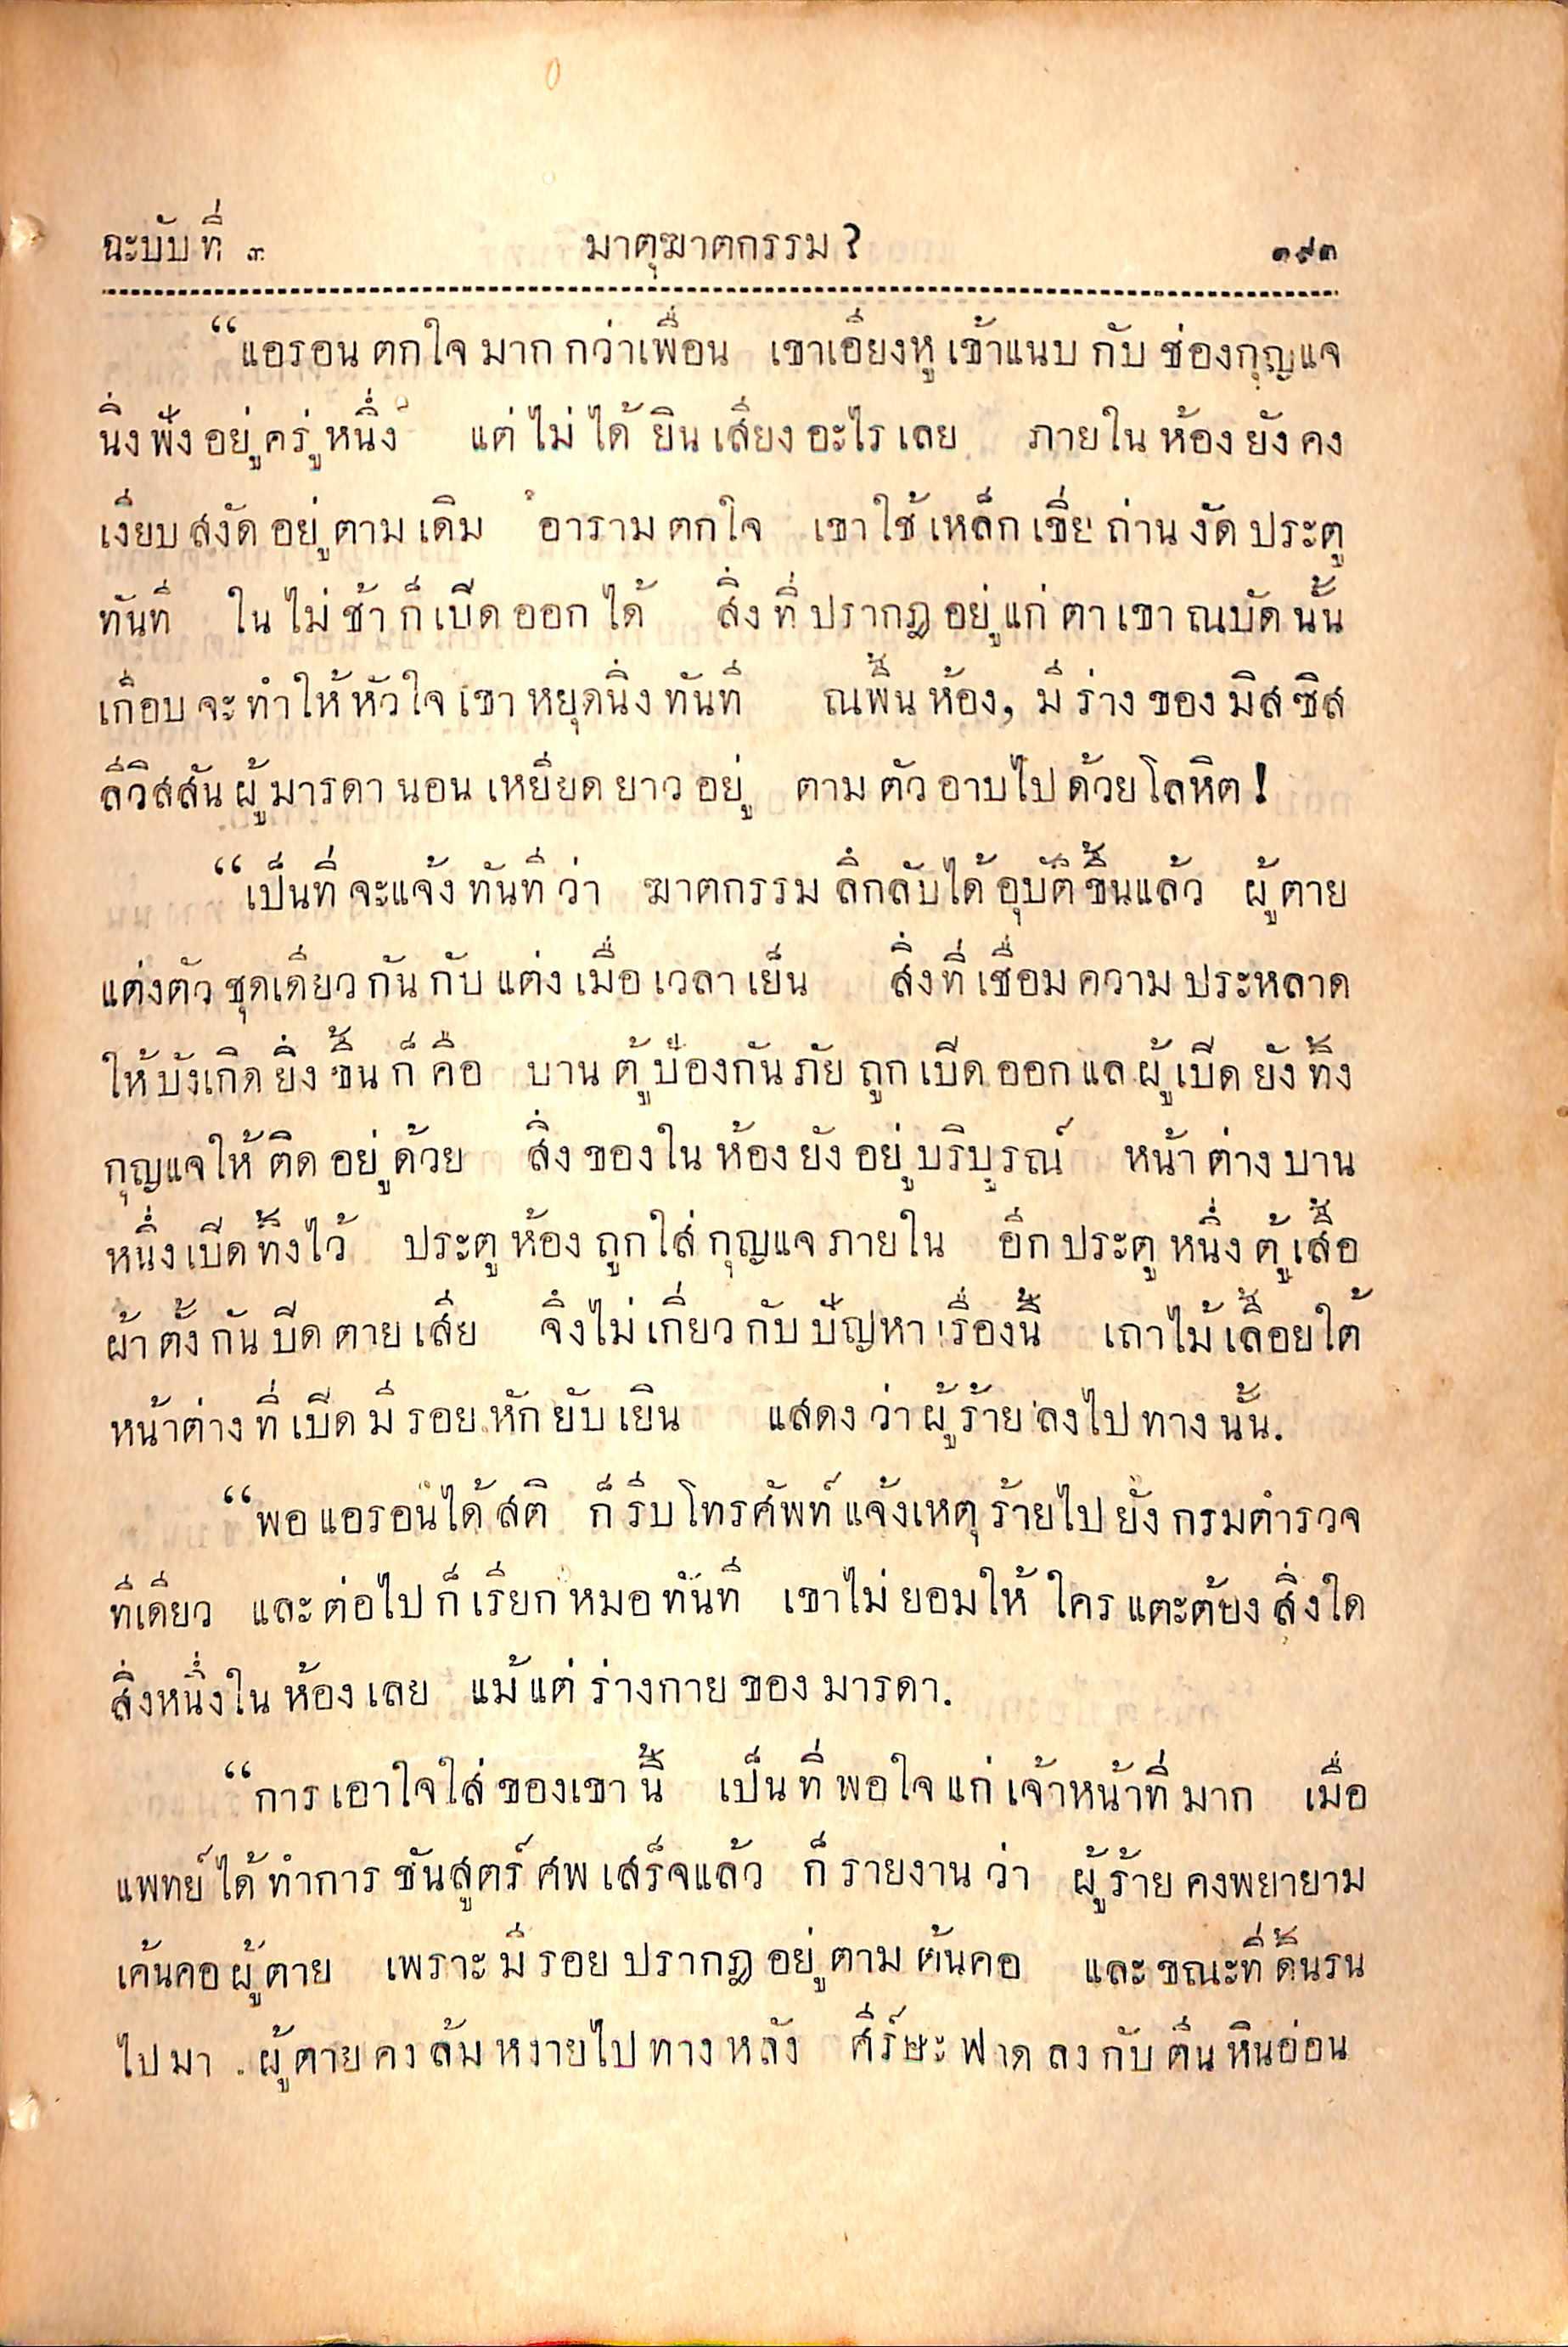 ฉะบับที่ ๓ มาตุฆาตกรรม ? ๑๙๓
“แอรอนตกใจมากกว่าเพื่อน เขาเอียงหูเข้าแนบกับช่องกุญแจ
นิ่งฟังอยู่ครู่หนึ่ง แต่ไม่ได้ยินเสียงอะไรเลย ภายในห้องยังคง
เงียบสงัดอยู่ตามเดิม อารามตกใจ เขาใช้เหล็กเขี่ยถ่านงัดประตู
ทันที ในไม่ช้าก็เปิดออกได้ สิ่งที่ปรากฏอยู่แก่ตาเขาณบัดนั้น
เกือบจะทำให้หัวใจเขาหยุดนิ่งทันที ณพื้นห้อง, มีร่างของมิสซิส
ลีวิสสันผู้มารดานอนเหยียดยาวอยู่ ตามตัวอาบไปด้วยโลหิต!
“เป็นที่จะแจ้งทันทีว่า ฆาตกรรมลึกลับได้อุบัติขึ้นแล้ว ผู้ตาย
แต่งตัวชุดเดียวกันกับแต่งเมื่อเวลาเย็น สิ่งที่เชื่อมความประหลาด
ให้บังเกิดยิ่งขึ้นก็คือ บานตู้ป้องกันภัยถูกเปิดออกแลผู้เปิดยังทิ้ง
กุญแจให้ติดอยู่ด้วย สิ่งของในห้องยังอยู่บริบูรณ์ หน้าต่างบาน
หนึ่งเปิดทิ้งไว้ ประตูห้องถูกใส่กุญแจภายใน อีกประตูหนึ่งตู้เสื้อ
ผ้าตั้งกันปิดตายเสีย จึงไม่เกี่ยวกับปัญหาเรื่องนี้ เถาไม้เลื้อยใต้
หน้าต่างที่เปิดมีรอยหักยับเยิน แสดงว่าผู้ร้ายลงไปทางนั้น.
“พอแอรอนได้สติ ก็รีบโทรศัพท์แจ้งเหตุร้ายไปยังกรมตำรวจ
ทีเดียว และต่อไปก็เรียกหมอทันที เขาไม่ยอมให้ใครแตะต้องสิ่งใด
สิ่งหนึ่งในห้องเลย แม้แต่ร่างกายของมารดา.
“การเอาใจใส่ของเขานี้ เป็นที่พอใจแก่เจ้าหน้าที่มาก เมื่อ
แพทย์ได้ทำการชันสูตร์ศพเสร็จแล้ว ก็รายงานว่า ผู้ร้ายคงพยายาม
เค้นคอผู้ตาย เพราะมีรอยปรากฏอยู่ตามต้นคอ และขณะที่ดิ้นรน
ไปมา ผู้ตายคงล้มหงายไปทางหลัง ศีร์ษะฟาดลงกับตีนหินอ่อน